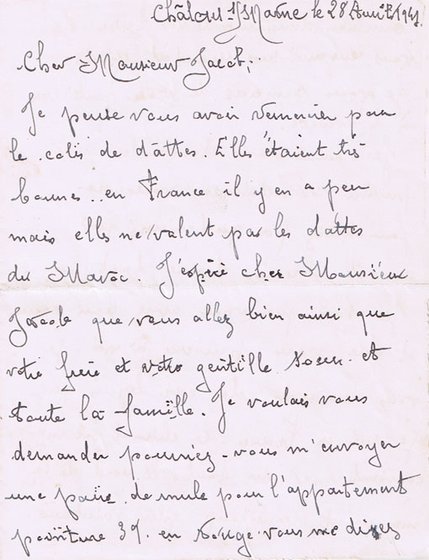 Châlons s/Marne le 28 Avril 1941.
Cher Monsieur Jacob,
Je pense vous avoir remercier pour
le colis de dattes. Elles étaient très
bonnes.. en France il y en a peu
mais elles ne valent pas les dattes
du Maroc. J'espère cher Monsieur
Jacob que vous allez bien ainsi que
votre frère et votre gentille soeur et
toute la famille. Je voulais vous
demander pourriez-vous m'envoyer
une paire de mule pour l'appartement
pointure 39. en rouge vous me direz